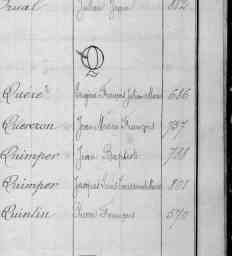 Julien Jean 812
Q
Quéré Jacques François Julien Marie 686
Quercron Jean Marie François 737
Quimper Jean Baptiste 788
Quimper Jacques Louis Marie 801
Quintin Pierre François 570